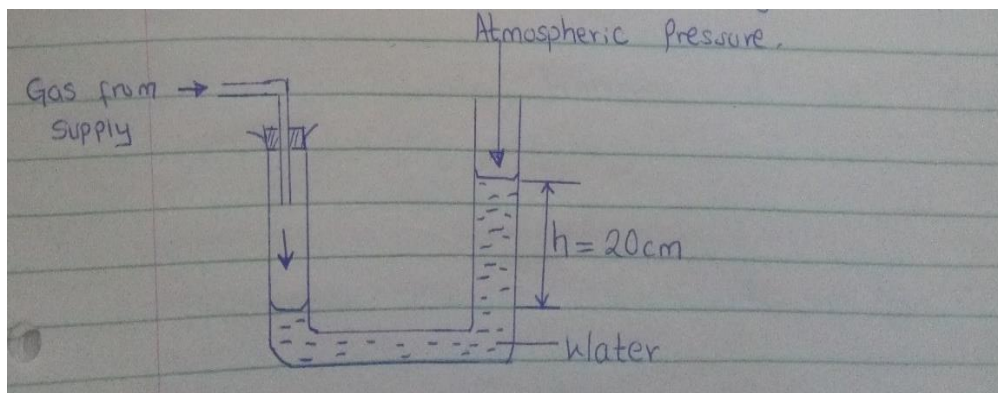 Atmospheric Pressure.
Gas from
Supply
h = 20cm
Water